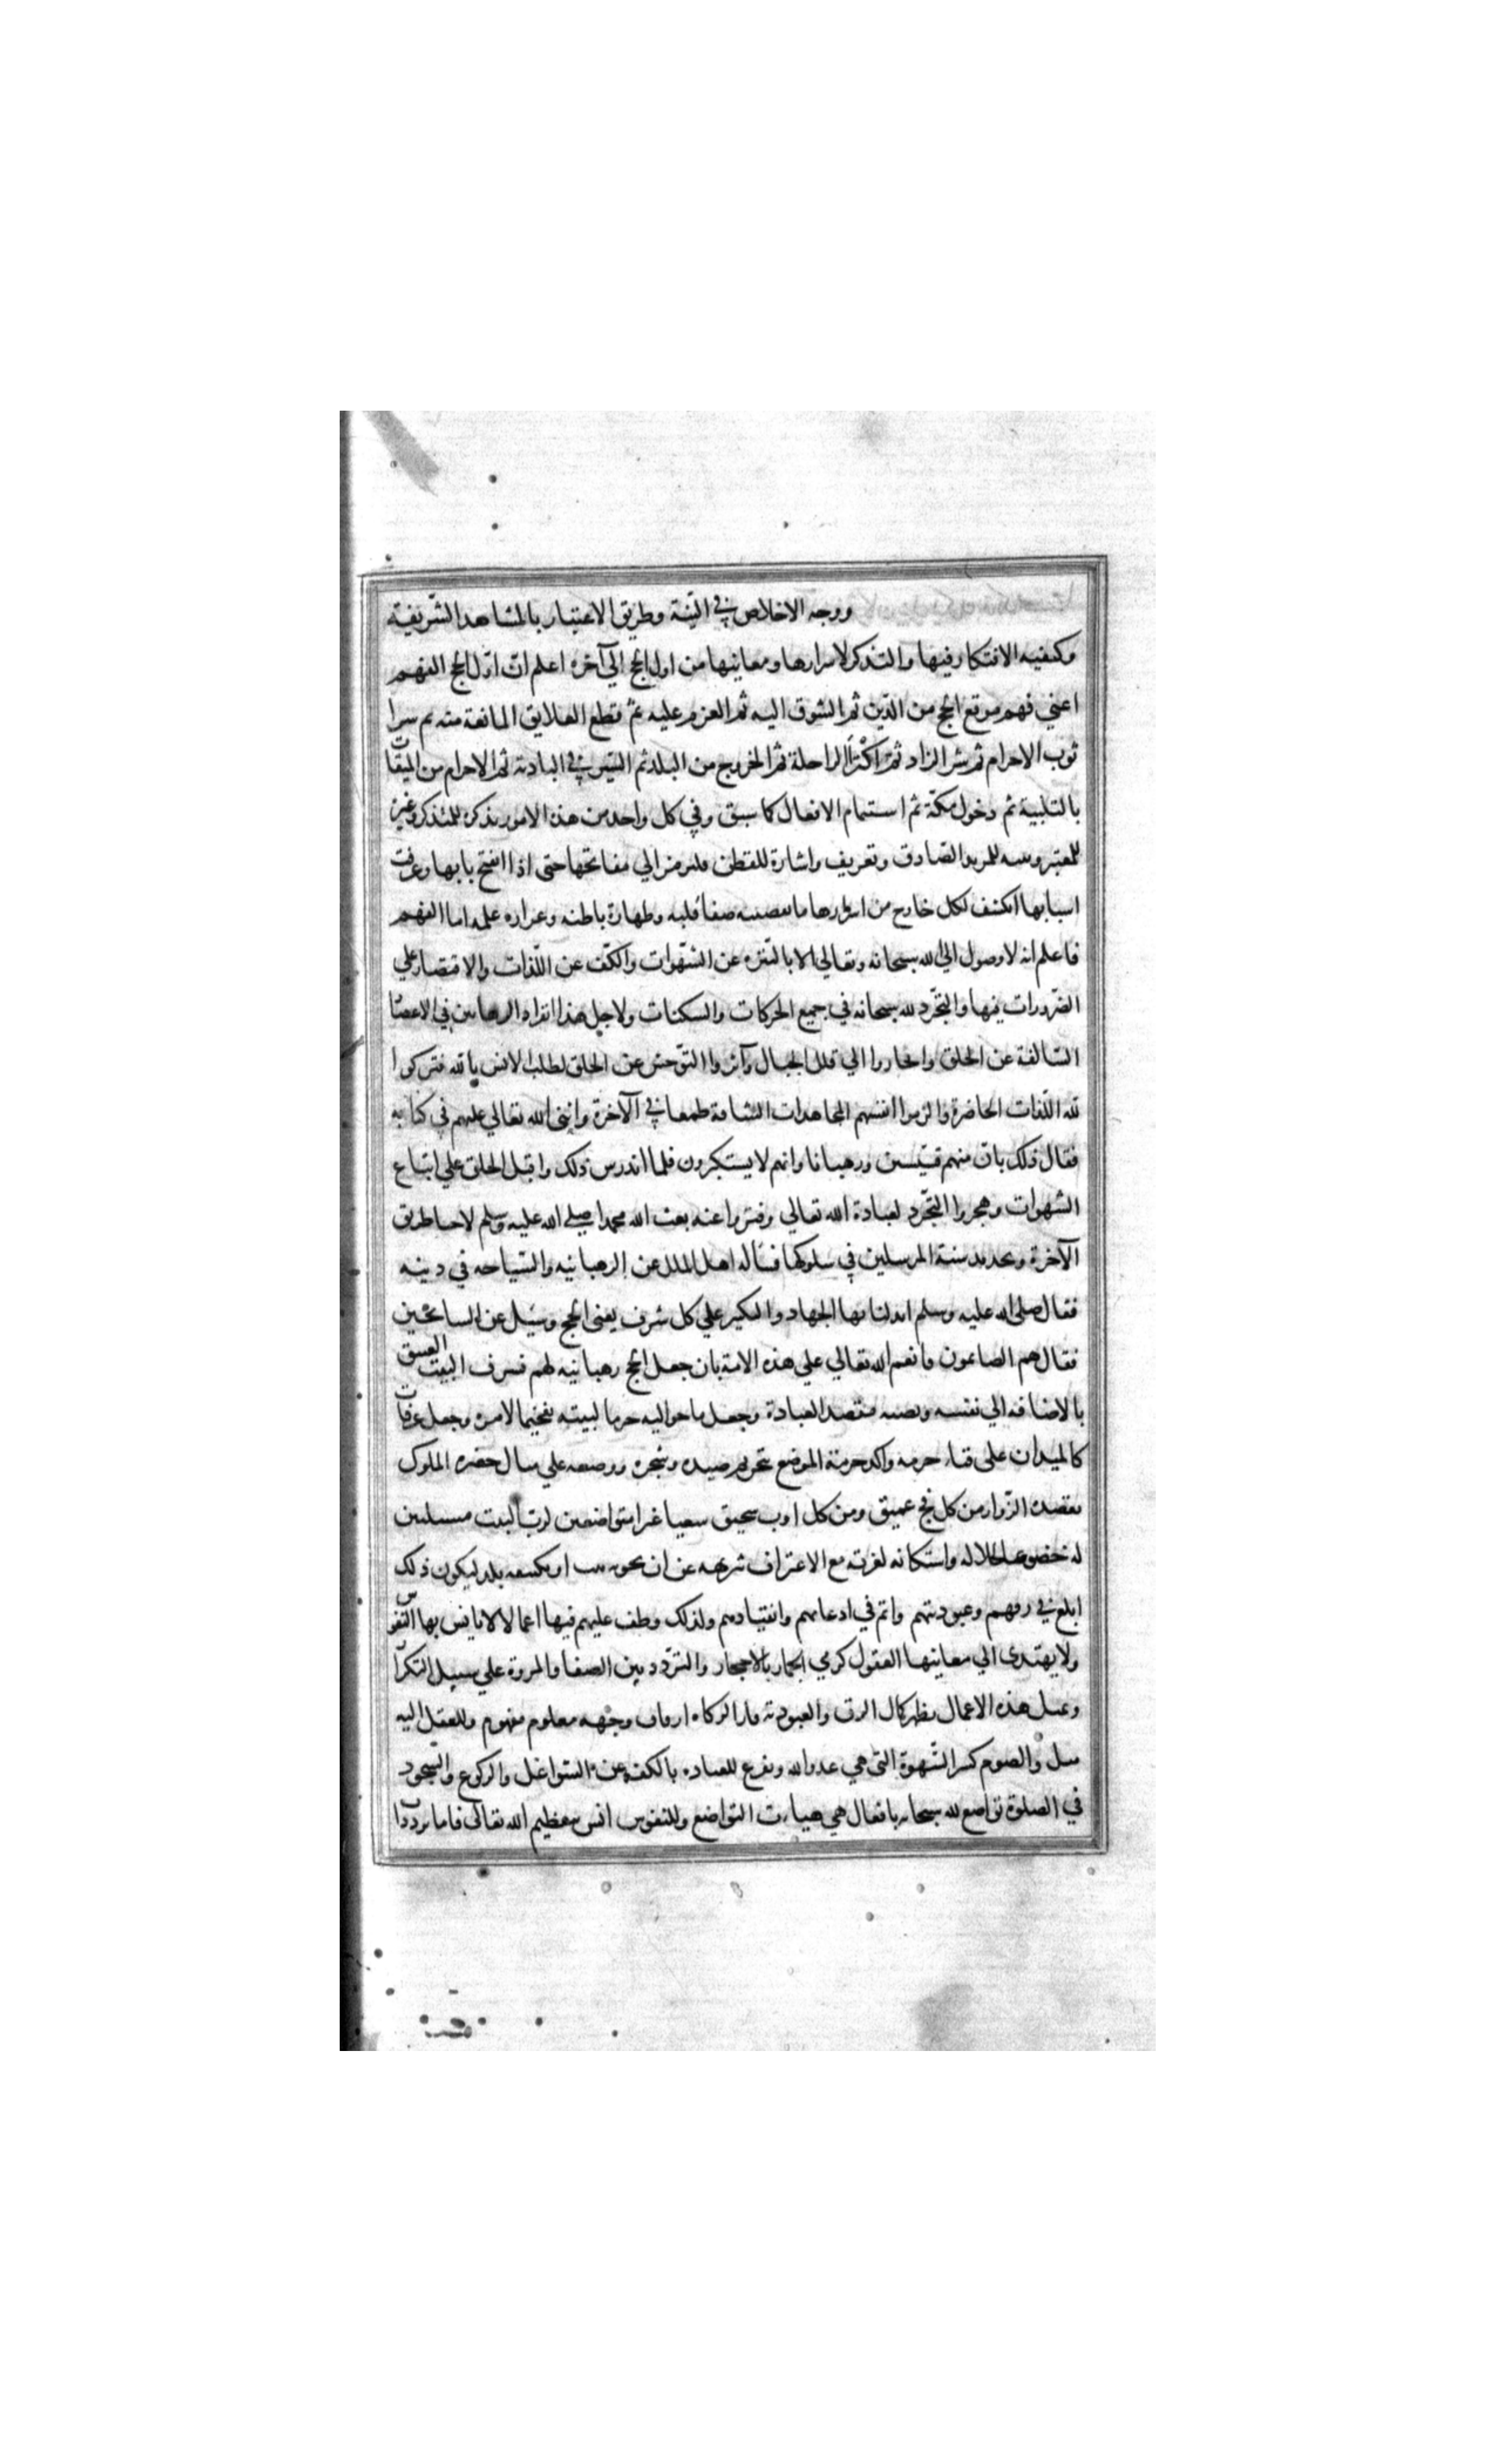 ووجه الاخلاص في النية وطريق الاعتبار بالمشاهد الشريفة
وكيفيه الافتكار فيها والتذكر لاسرارها ومعانيها من اول الحج الي آخره اعلم ان اول الحج الفهم
اعني فهم موقع الحج من الدين ثم الشوق اليه ثم العزم عليه ثم قطع العلايق المانعة منه ثم سرا
ثوب الاحرام ثم شر الزاد ثم اكترا الراحلة ثم الخروج من البلد ثم السير في البادية ثم الاحرام من الميقات
بالتلبية ثم دخول مكة ثم استتمام الافعال كما سبق وفي كل واحد من هذه الامور تذكره للمتذكر وعبرة
للمعتبر وتنبيه للمريد الصادق وتعريف واشارة للفطن فلنرمز الي مفاتحها حتى اذا انفتح بابها وعرفت
اسبابها انكشف لكل خارج من اسرارها ما صفا قلبه وطهارة باطنه وغزاره علمه اما الفهم
فاعلم انه لا وصول الي الله سبحانه وتعالي الا بالتنزه عن الشهوات والكف عن اللذات والاقتصار علي
الضرورات فيها والتجرد لله سبحانه في جميع الحركات والسكنات ولاجل هذا انفراد الرهابين في الاعصا
السالفة عن الخلق وانحازوا الي قلل الجبال وآثروا التوحش عن الخلق لطلب الانس بالله فتركوا
لله اللذات الحاضرة والزموا انفسهم المجاهدات الشاقة طمعا في الآخرة واثنى الله تعالي عليهم في كتابه
فقال ذلك بان منهم قسيسين ورهبانا وانهم لا يستكبرون فلما اندرس ذلك واقبل الخلق علي اتباع
الشهوات وهجروا التجرد لعبادة الله تعالي وفتروا عنه بعث الله محمدا صلي الله عليه وسلم لاحيا طريق
الآخرة وتجديد سنة المرسلين في سلوكها فساله اهل الملل عن الرهبانيه والسياحه في دينه
فقال صلى الله عليه وسلم ابدلنا بها الجهاد والتكبير علي كل شرف يعني الحج وسيل عن السائحين
فقال هم الصائمون فانعم الله تعالي علي هذه الامة بان جعل الحج رهبانيه لهم فشرف البيت العتيق
بالاضافه الي نفسه ونصبه مقصد العبادة وجعل ما حواليه حرما لبيته تفخيما لامره وجعل عرفات
كالميدان على فنا حرمه واكد حرمة الموضع بتحريم صيده وشجره ووضعه علي مثال حضره الملوك
يقصده الزوار من كل فج عميق ومن كل اوب سحيق شعثا غبرا متواضعين لرب البيت مستكينين
له خضوعا لجلاله واستكانه لعزته مع الاعتراف بتنزيهه عن ان يحويه بيت او يكتنفه بلد ليكون ذلك
ابلغ في رقهم وعبوديتهم واتم في اذعانهم وانقيادهم ولذلك وظف عليهم فيها اعمالا لا يانس بها النفوس
ولا يهتدى الي معانيها العقول كرمي الجمار بالاحجار والتردد بين الصفا والمروة علي سبيل التكرا
وبمثل هذه الاعمال يظهر كمال الرق والعبودية فان الزكاه ارفاق وجهه معلوم مفهوم وللعقل اليه
ميل والصوم كسر الشهوة التي هي عدو الله وتفرغ للعباده بالكف عن الشواغل والركوع والسجود
في الصلوة تواضع لله سبحانه بافعال هي هيات التواضع وللنفوس انس بتعظيم الله تعالى فاما ترددا